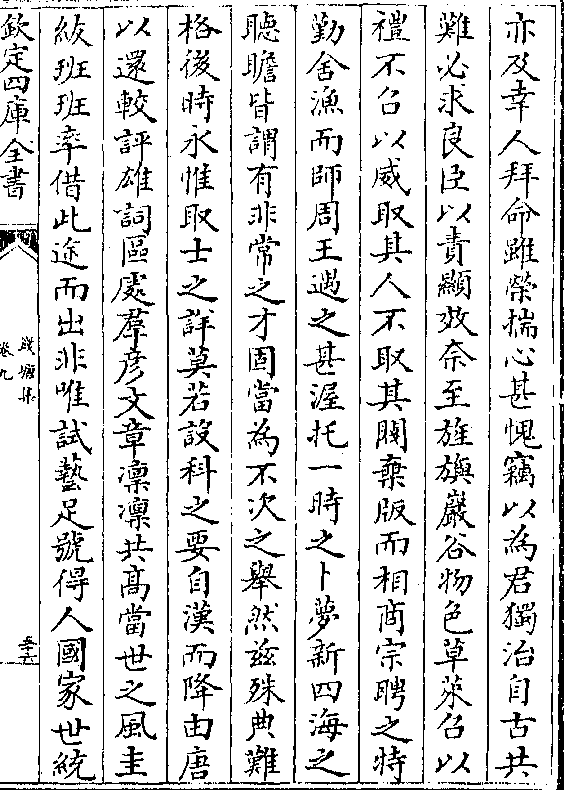 亦及幸人拜命雖榮揣心甚愧竊以為君獨治自古共
難必求良臣以責顯效奈至旌旟巖谷物色草萊召以
禮不召以威取其人不取其閥棄版而相商宗聘之特
勤舍漁而師周王遇之甚渥托一時之卜夢新四海之
聽瞻皆謂有非常之才固當為不次之舉然茲殊典難
格後時永惟取士之詳莫若設科之要自漢而降由唐
以還較評雄詞區處羣彦文章凛凛共高當世之風圭
紱班班率借此途而出非唯試藝足號得人國家世統
欽定四庫全書
錢塘集
卷九